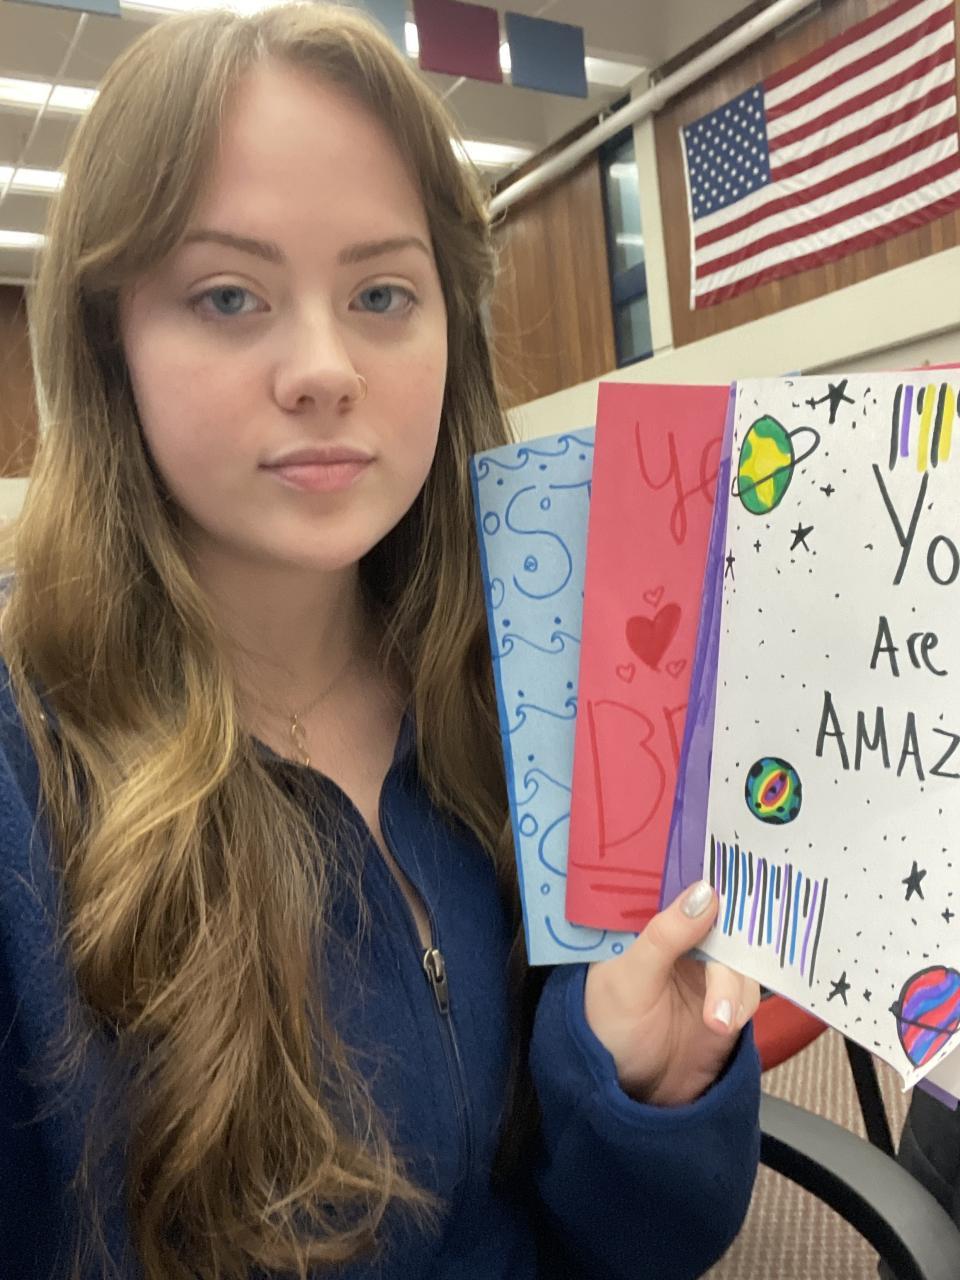 S
Ye
Br
Yo
Are
AMAZ